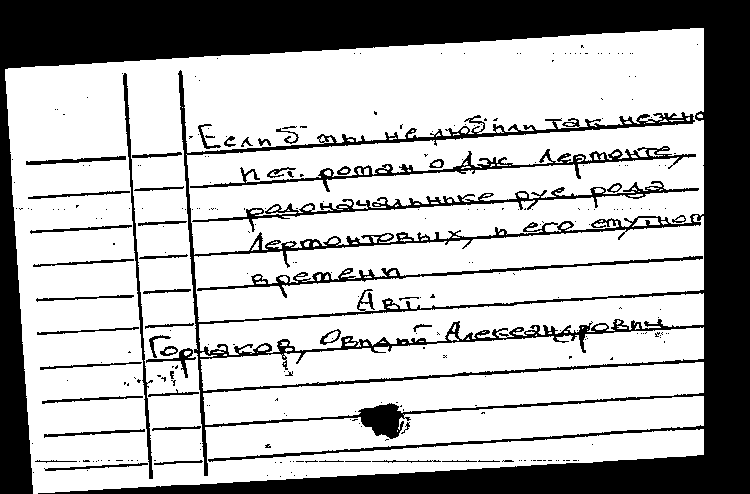 Если б мы не любили так нежно
ист. роман о Дж. Лермонте,
родоначальнике рус. рода
Лермонтовых, и его смутном
времени
Авт.:
Горчаков, Овидий Александрович